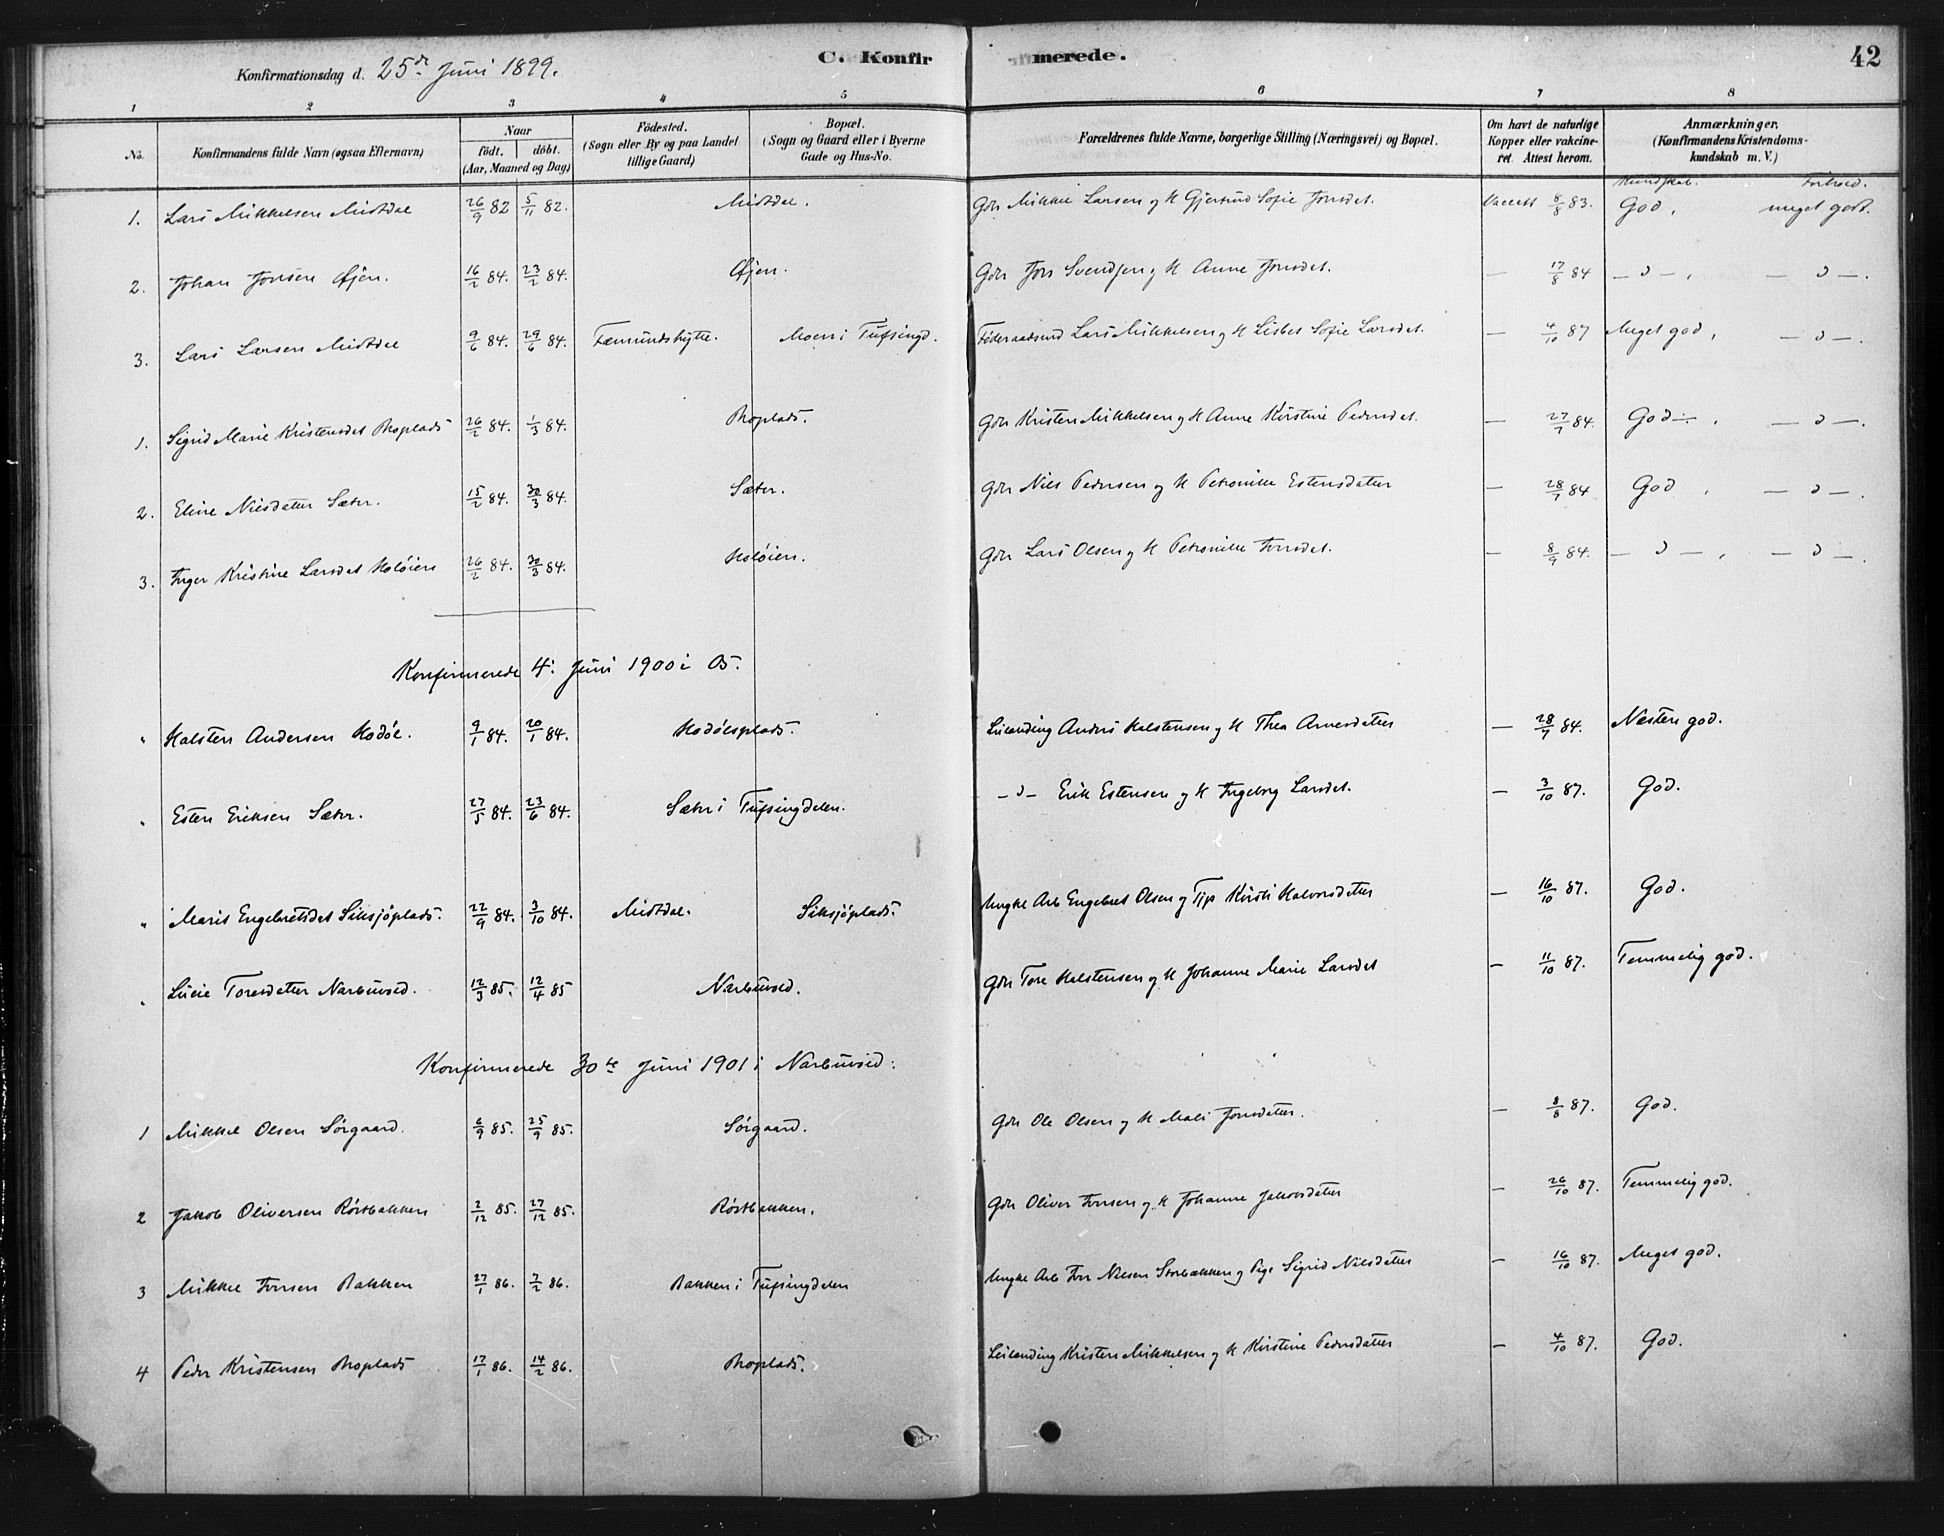 C. Konfirmerede.
42
Konfirmationsdag d. 25de Juni 1899.
1 2 3 4 5 6 7 8
No. Konfirmandens fulde Navn (ogsaa Efternavn) Naar født. døbt. (Aar, Maaned og Dag) Fødested. (Sogn eller By og paa Landet tillige Gaard) Bopæl. (Sogn og Gaard eller i Byerne Gade og Hus-No. Forældrenes fulde Navne, borgerlige Stilling (Næringsvei) og Bopæl. Om havt de naturlige Kopper eller vakcineret. Attest herom. Anmærkninger. (Konfirmandens Kristendomskundskab m. V.)
Kundskab. Forhold.
1. Lars Mikkelsen Midtdal 26/9 82 5/11 82. Midtdal. Gbr Mikkel Larsen og H Gjertrud Sofie Jonsdat. Vaccatt 8/8 83. God, meget godt.
2. Johan Jonsen Øjen. 16/2 84. 23/2 84. Øjen. Gbr Jon Svendsen og H Anne Jonsdat. — 17/8 84 — " —, — " —.
3. Lars Larsen Midtdal 9/6 84. 29/6 84. Fæmundshytte. Moen i Tufsingd. Føderaadsmd Lars Mikkelsen og H Lisbet Sofie Larsdat. — 4/10 87 Meget god, — " —.
1. Sigrid Marie Kristensdat Moplads 26/2 84. 1/3 84. Moplads. Gbr Kristen Mikkelsen og H Anne Kirstine Pedersdat. — 27/7 84. God ÷, — " —.
2. Eline Nilsdatter Sæter. 15/2 84. 30/3 84. Sæter. Gbr Nils Pedersen og H Petronille Estensdatter — 28/7 84 God, — " —.
3. Inger Kristine Larsdat Holøien 26/2 84. 30/3 84. Holøien. Gbr Lars Olsen og H Petronille Jonsdat. — 8/9 84. — " —, — " —.
Konfirmerede 4. Juni 1900 i Os.
" Halsten Andersen Hodøl. 9/1 84. 20/1 84. Hodølsplads. Leilænding Anders Halstensen og H Thea Arnesdatter — 28/7 84. Næsten god.
" Esten Eriksen Sæter. 27/5 84. 23/6 84. Sæter i Tufsingdalen. — " — Erik Estensen og H Ingeborg Larsdat. — 3/10 87. God.
" Marit Engebretsdat Siksjøplads. 22/9 84. 3/10 84. Midtdal. Siksjøplads. Ungkr Arb Engebret Olsen og Pige Kirsti Halvorsdatter — 16/10 87. God.
" Lucie Toresdatter Narbuvold. 12/3 85. 12/4 85 Narbuvold. Gbr Tore Halstensen og H Johanne Marie Larsdat — 11/10 87. Temmelig god.
Konfirmerede 30te Juni 1901 i Narbuvold:
1 Mikkel Olsen Sørgaard. 6/9 85. 25/9 85. Sørgaard. Gbr Ole Olsen og H Mali Jonsdatter. — 8/8 87. God.
2 Jakob Oliversen Røstbakken 2/12 85. 27/12 85. Røstbakken. Gbr Oliver Jonsen og H Johanne Jakobsdatter — 26/10 87. Temmelig god.
3 Mikkel Jonsen Bakken 27/1 86. 7/2 86. Bakken i Tufsingdalen Ungkr Arb Jon Nilsen Storbakken og Pige Sigrid Nilsdatter — 16/10 87. Meget god.
4 Peder Kristensen Moplads 17/1 86. 14/2 86. Moplads. Leilænding Kristen Mikkelsen og H Kirstine Pedersdatter — 4/10 87. God.